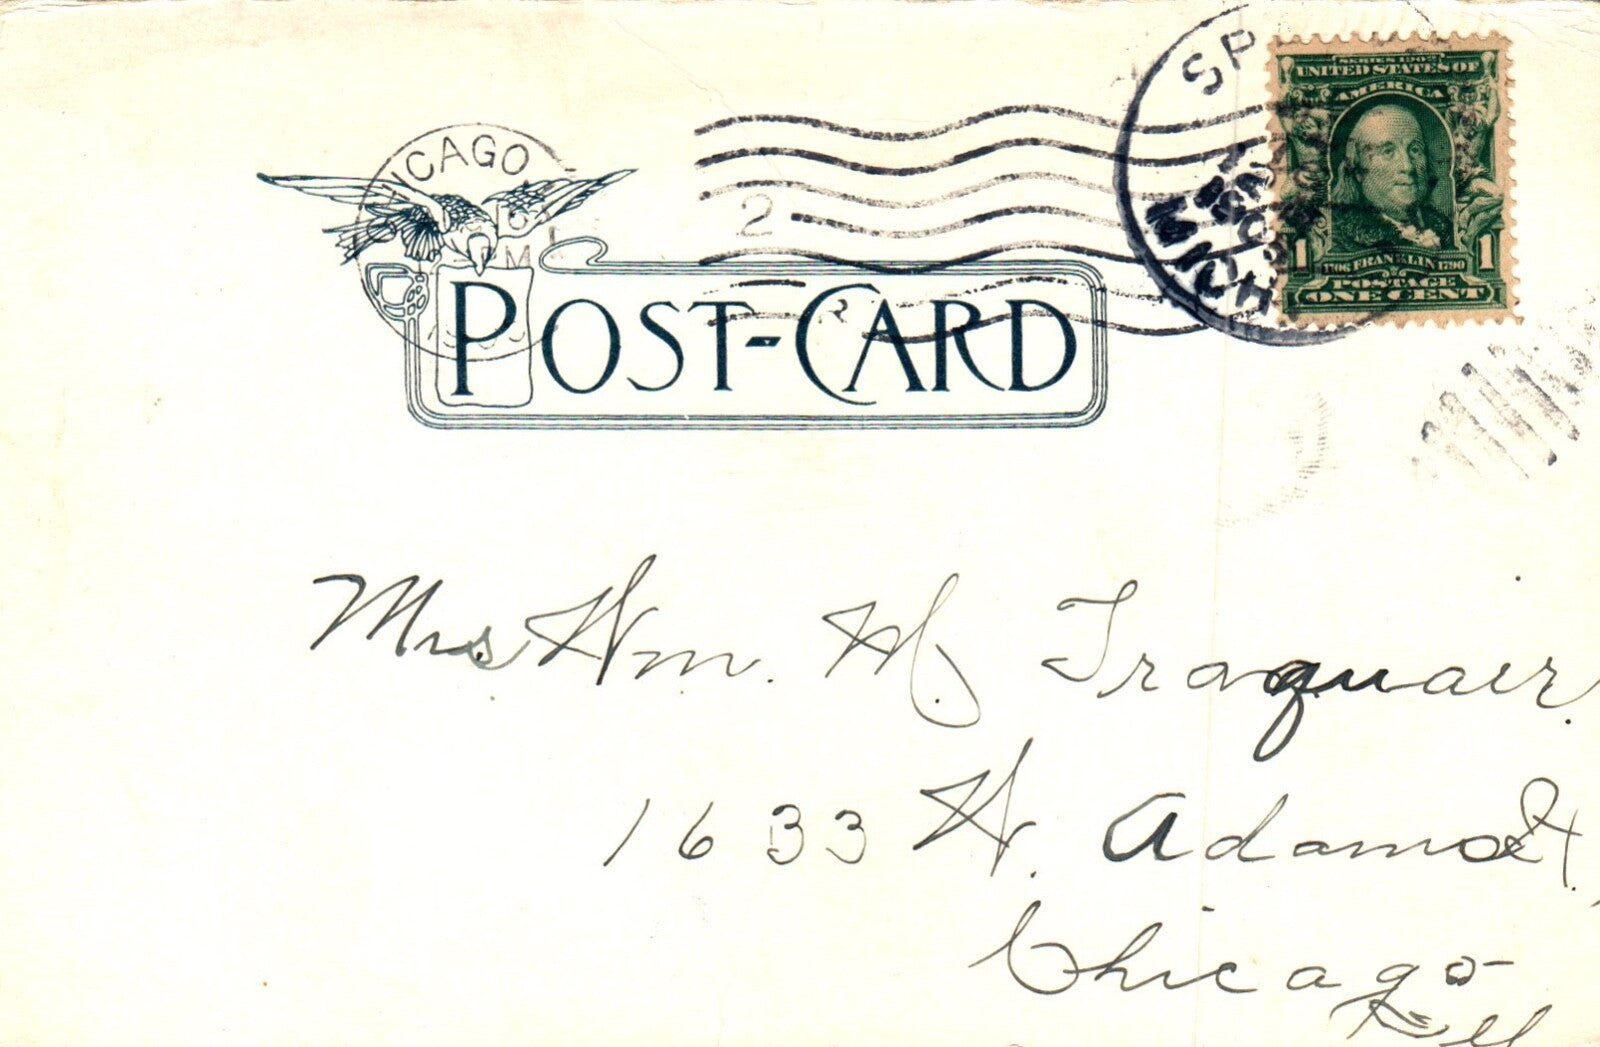 CHICAGO
SP
MICH
SERIES 1902
UNITED STATES OF
AMERICA
1706 FRANKLIN 1790
1 1
POSTAGE
ONE CENT
2
M
R
POST-CARD
Mrs Wm. M. Traquair.
1633 W. Adams St.,
Chicago
Ill